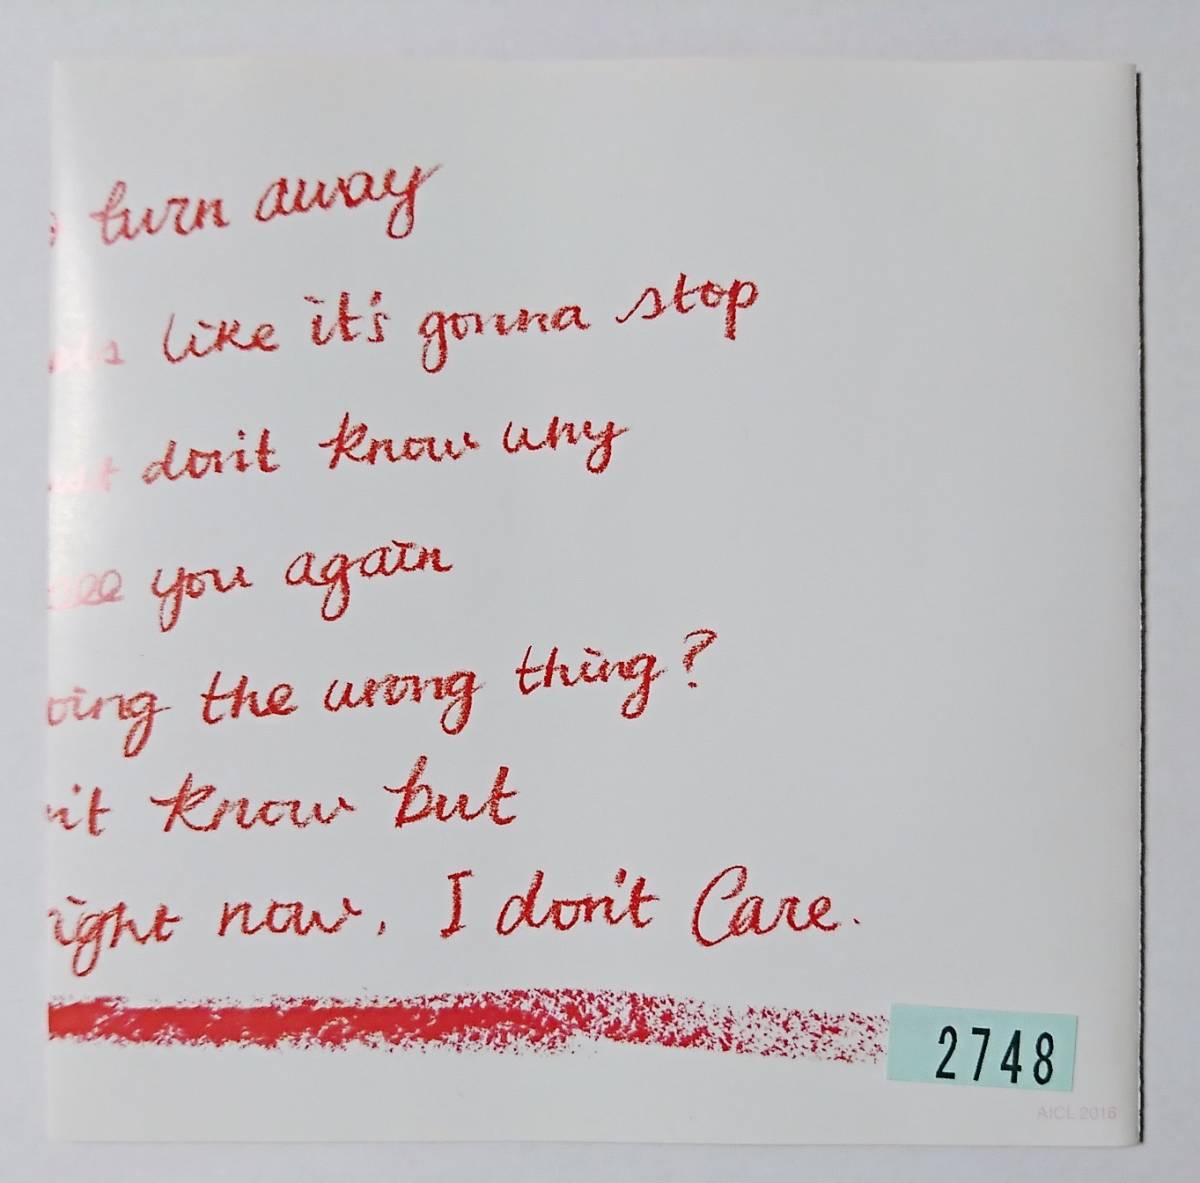 turn away
like it's gonna stop
don't know why
see you again
oing the wrong thing?
n't know but
ight now, I don't Care.
2748
AICL 2016